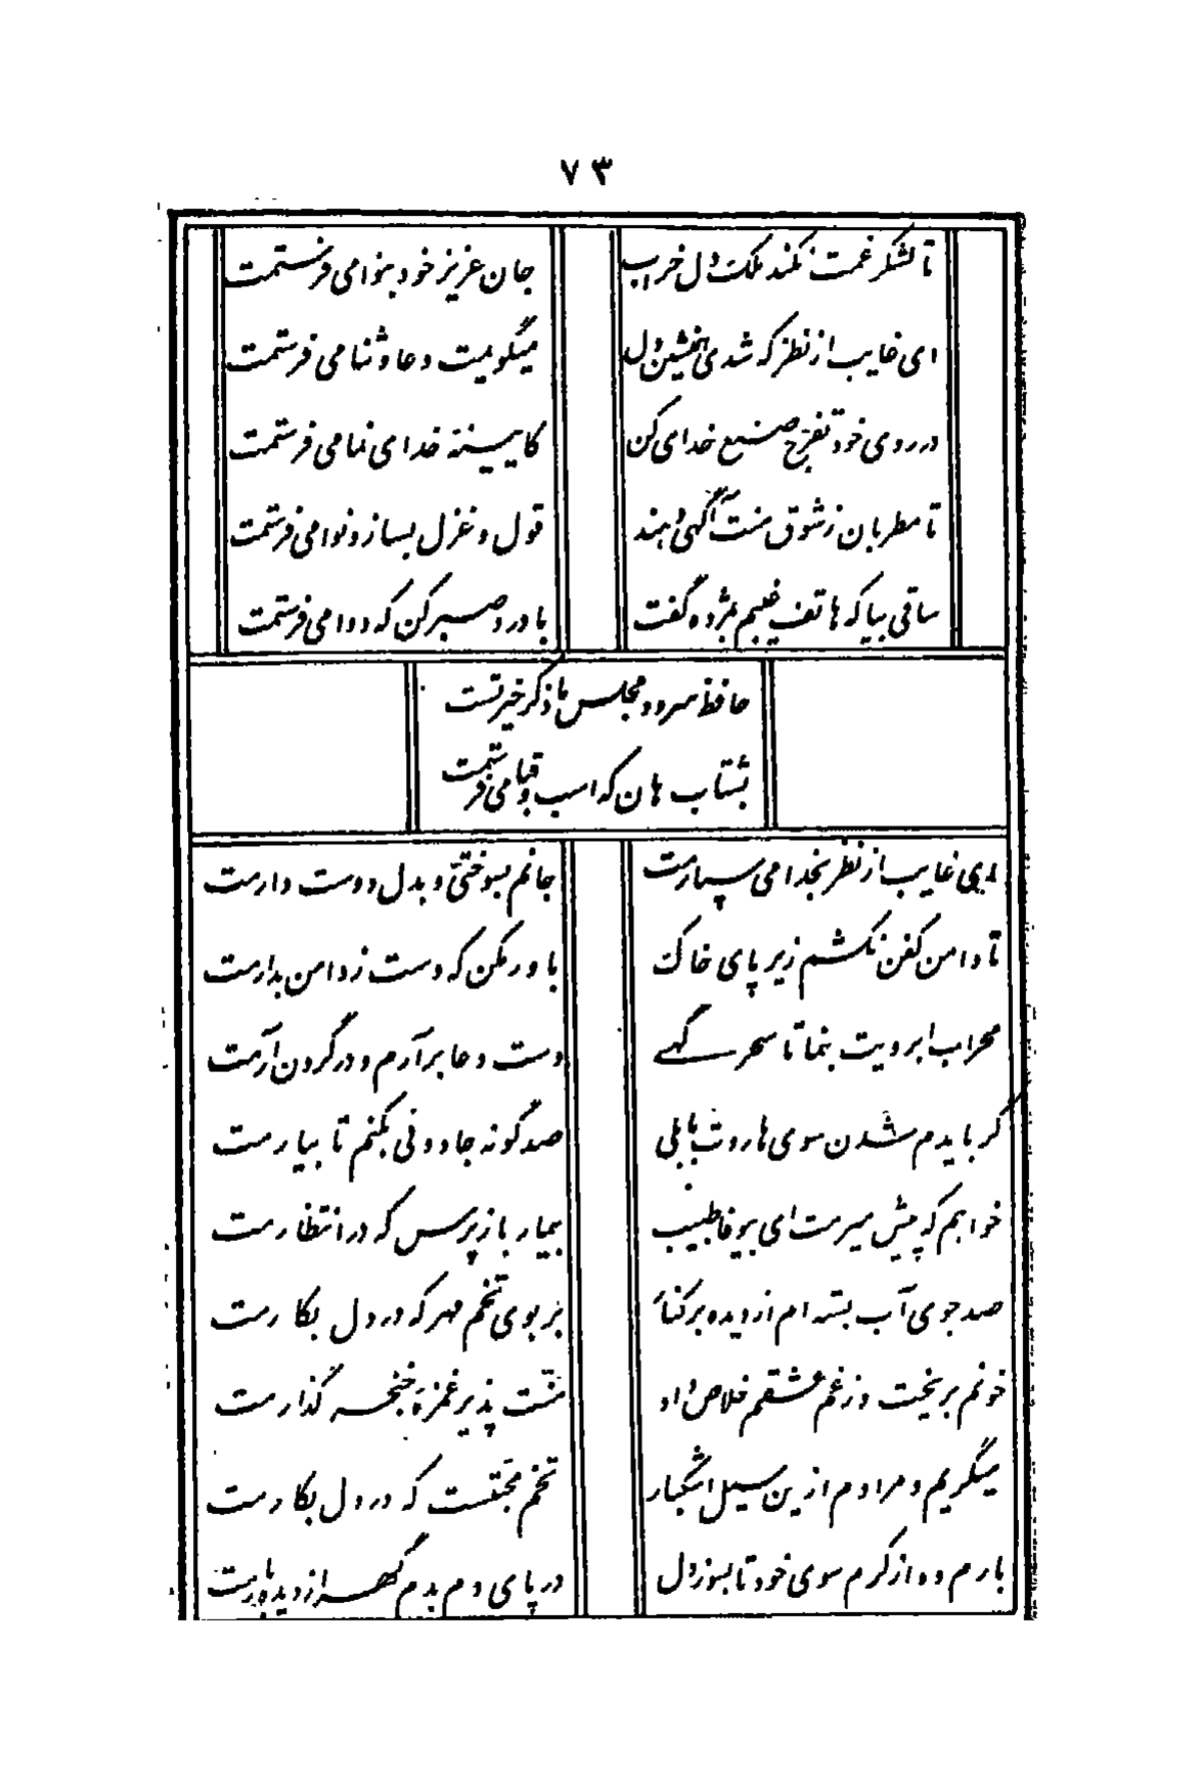 ۷۳
تا لشکر غمت نکند ملک دل خراب
جان عزیز خود بنوا می فرستمت
ای غایب از نظر که شدی همنشین دل
میگویمت دعا و ثنا می فرستمت
در روی خود تفرج صنع خدای کن
کایینهٔ خدای نما می فرستمت
تا مطربان ز شوق منت آگهی دهند
قول و غزل بساز و نوا می فرستمت
ساقی بیا که هاتف غیبم بمژده گفت
با درد صبر کن که دوا می فرستمت
حافظ سرود مجلس ما ذکر خیر تست
بشتاب هان که اسب و قبا می فرستمت
ای غایب از نظر بخدا می سپارمت
جانم بسوختی و بدل دوست دارمت
تا دامن کفن نکشم زیر پای خاک
باور مکن که دست ز دامن بدارمت
محراب ابرویت بنما تا سحرگهی
دست دعا برآرم و در گردن آرمت
گر بایدم شدن سوی هاروت بابلی
صد گونه جادوئی بکنم تا بیارمت
خواهم که پیش میرمت ای بیوفا طبیب
بیمار باز پرس که در انتظارمت
صد جوی آب بسته ام از دیده بر کنار
بر بوی تخم مهر که در دل بکارمت
خونم بریخت وز غم عشقم خلاص داد
منت پذیر غمزهٔ خنجر گذارمت
میگریم و مرادم ازین سیل اشکبار
تخم محبتست که در دل بکارمت
بارم ده از کرم سوی خود تا بسوز دل
در پای دم بدم گهر از دیده بارمت